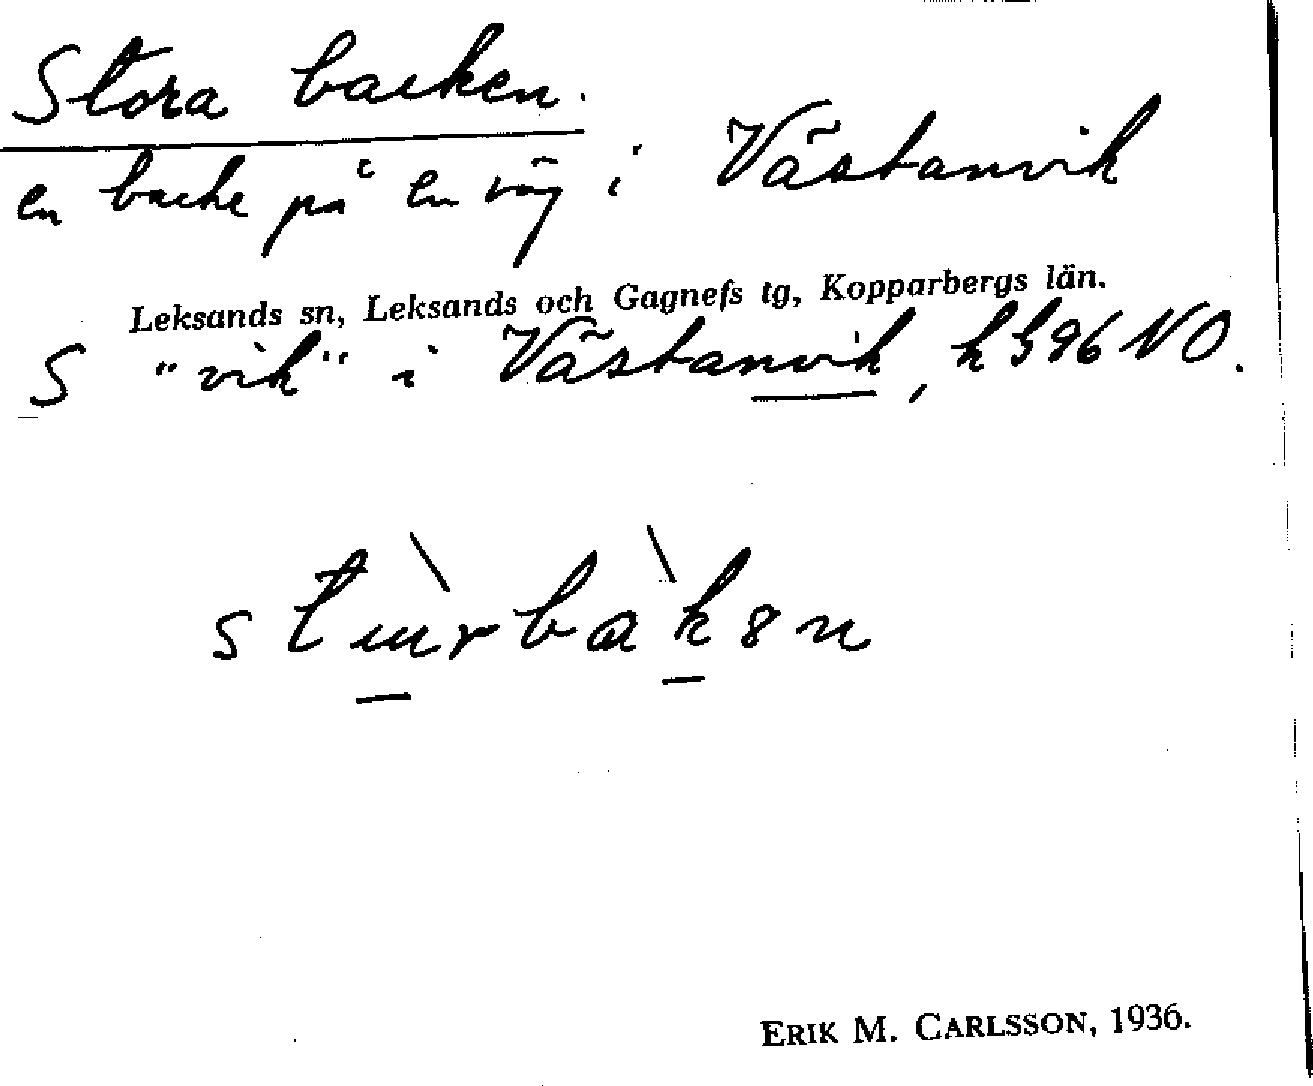 Stora backen.
en backe på en väg i Västanvik
Leksands sn, Leksands och Gagnefs tg, Kopparbergs län.
S "vik" i Västanvik, hb96 NO.
ERIK M. CARLSSON, 1936.